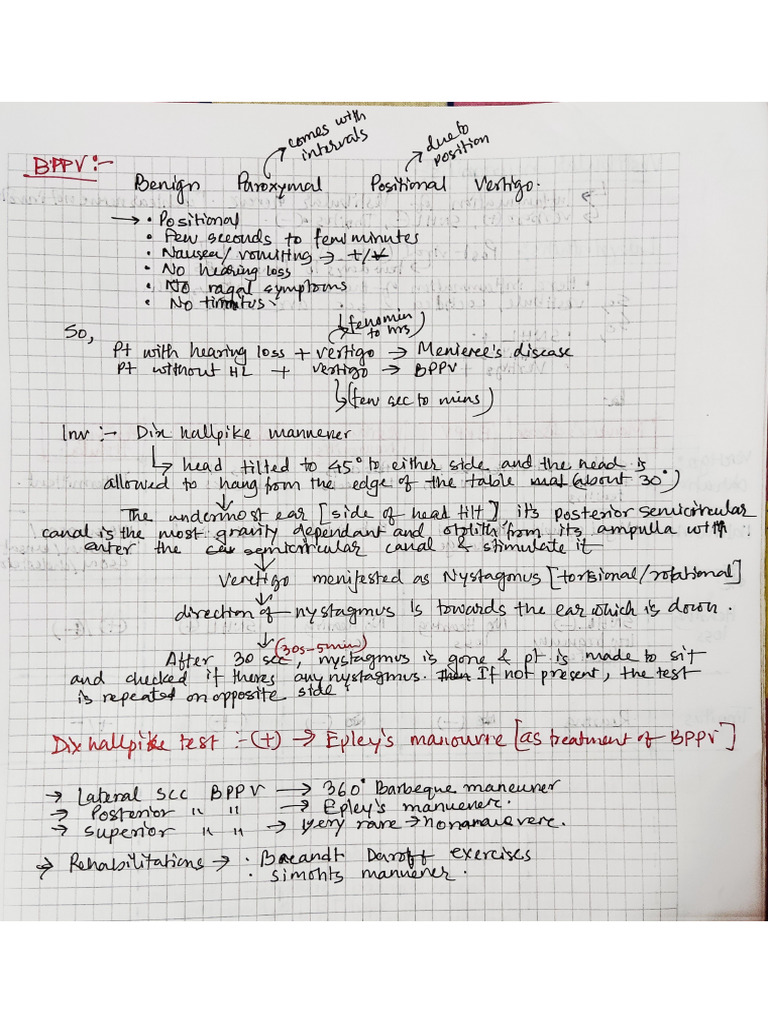 comes with
intervals
due to
position
BPPV:-
Benign Paroxymal Positional Vertigo.
→ • Positional
• Few seconds to few minutes
• Nausea/vomiting → +/-
• No hearing loss
• No vagal symptoms
• No tinnitus
So,
(few min
to hrs)
Pt with hearing loss + vertigo → Menieree's disease
Pt without HL + vertigo → BPPV
(few sec to mins)
Inv :- Dix hallpike mannever
↳ head tilted to 45° to either side and the head is
allowed to hang from the edge of the table (about 30°)
The undermost ear [side of head tilt] its posterior semicircular
canal is the most gravity dependant and otolith from its ampulla will
enter the semicircular canal & stimulate it
Vertigo menifested as Nystagmus [torsional/rotational]
direction of nystagmus is towards the ear which is down.
(30s-5min)
After 30 sec, nystagmus is gone & pt is made to sit
and checked if theres any nystagmus. If not present, the test
is repeated on opposite side
Dix hallpike test :- (+) → Epley's manouvre [as treatment of BPPV]
→ Lateral scc BPPV → 360° Barbeque maneuver
→ Posterior " " → Epley's manuever.
→ Superior " " → very rare →
→ Rehabilitations → • Brandt Daroff exercises
• manuever.